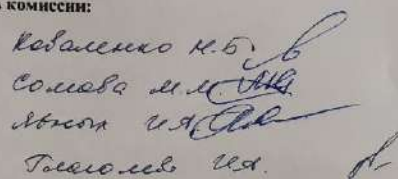 комиссии:
Коваленко Н.Б.
Сомова М.М.
И.А.
Глаголев И.А.